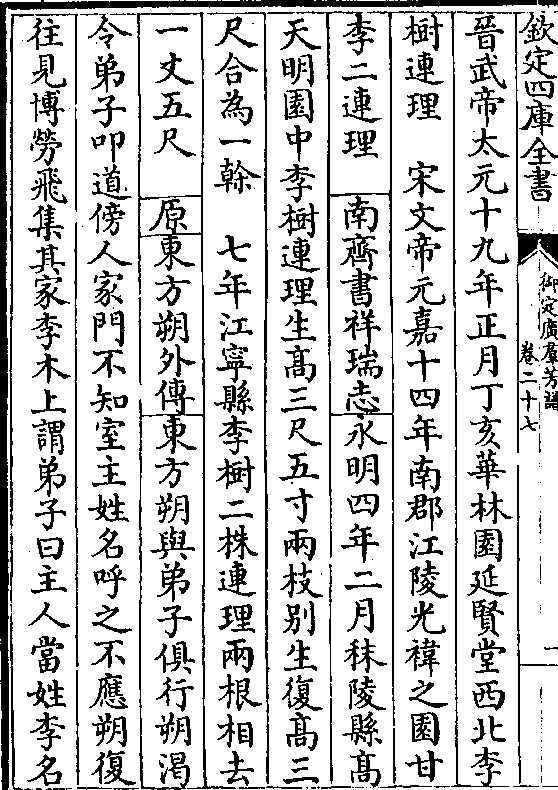 欽定四庫全書
御定廣羣芳譜
卷二十七
一
晉武帝太元十九年正月丁亥華林園延賢堂西北李
樹連理　宋文帝元嘉十四年南郡江陵光褘之園甘
李二連理　南齊書祥瑞志永明四年二月秣陵縣髙
天明園中李樹連理生髙三尺五寸兩枝别生復髙三
尺合為一榦　七年江寧縣李樹二株連理兩根相去
一丈五尺　原東方朔外傳東方朔與弟子俱行朔渴
令弟子叩道傍人家門不知室主姓名呼之不應朔復
往見博勞飛集其家李木上謂弟子曰主人當姓李名